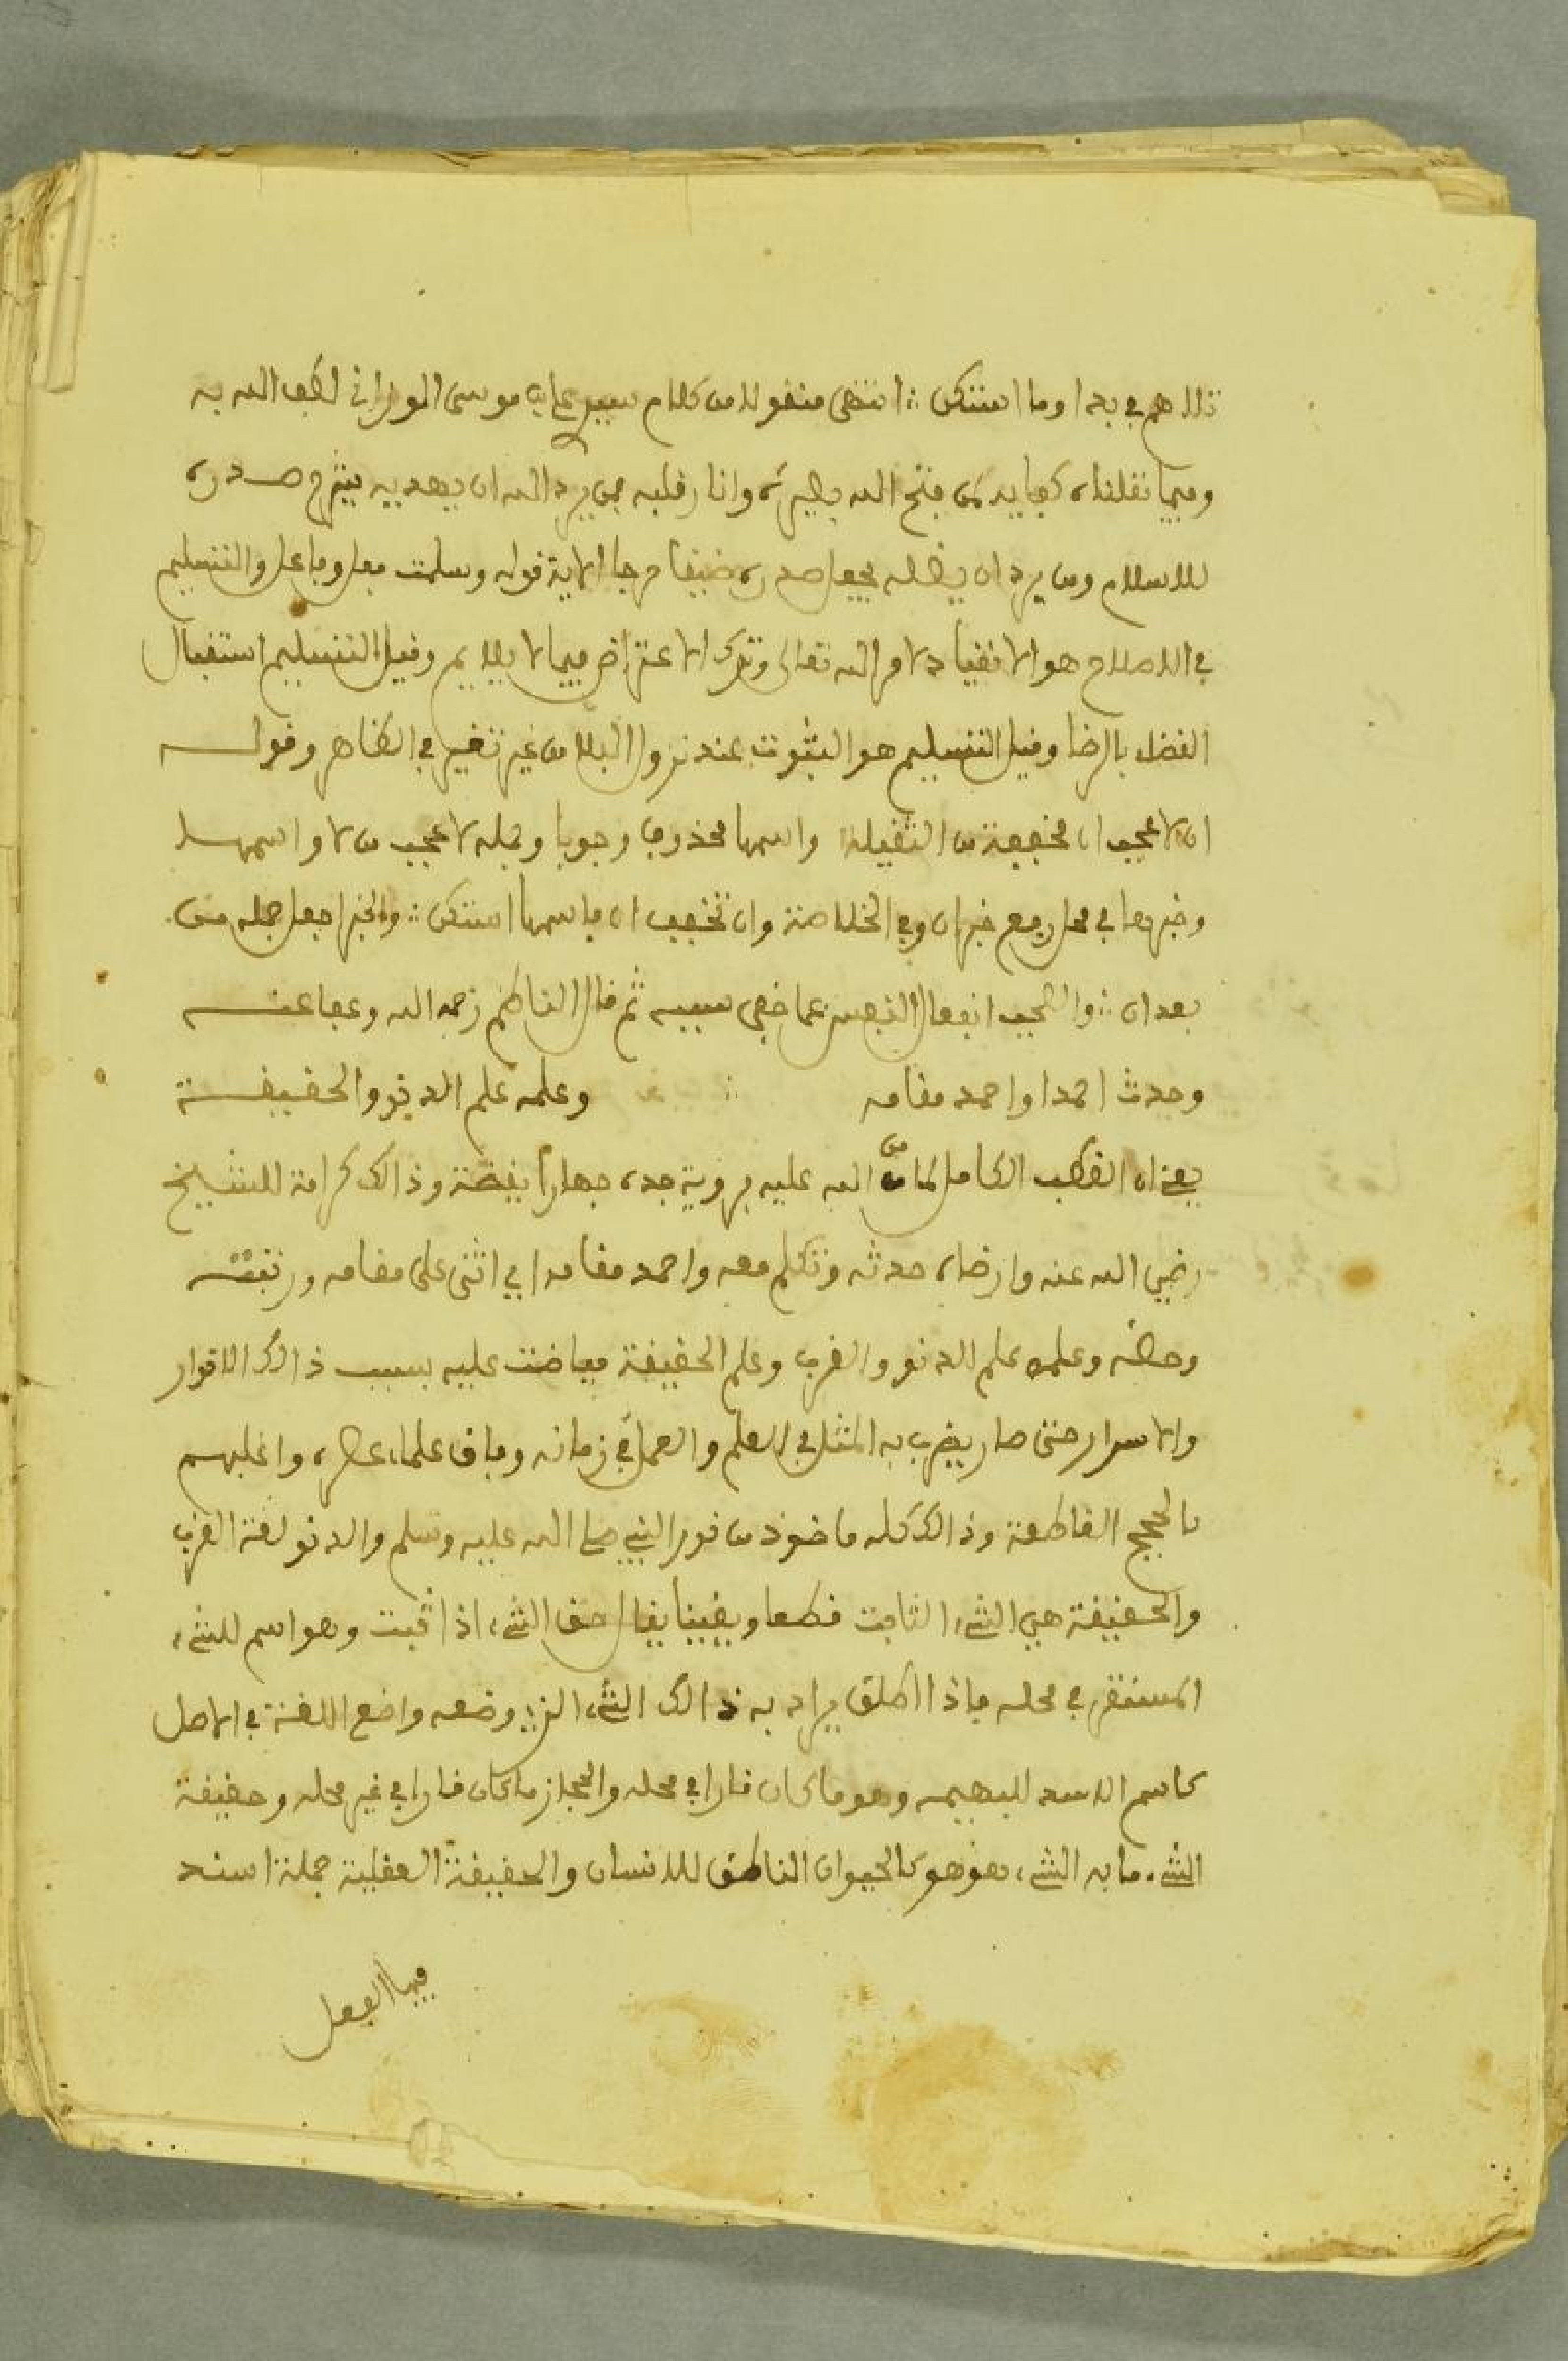 ذلا هم في بدا وما استكن ؞ انتهى منقولا من كلام سيدي علي بن موسى الوزاني لطف الله به
وفيما نقلناه كفاية لمن فتح الله بصيرته وانار قلبه فمن يرد الله ان يهديه يشرح صدره
للاسلام ومن يرد ان يضله يجعل صدره ضيقا حرجا الاية قوله وسلمت فعل وفاعل والتسليم
في الاصلاح هو الانقياد لامر الله تعالى وترك الاعتراض فيما لا يلايم وقيل التسليم استقبال
القضاء بالرضا وقيل التسليم هو الثبوت عند نزول البلا من غير تغير في الظاهر وقوله
ان لا عجب ان مخففة من الثقيلة واسمها محذوف وجوبا وجملة لا عجب من لا واسمها
وخبرها في محل رفع خبر ان وفي الخلاصة وان تخفف ان فاسمها استكن ؞ والخبر اجعل جملة من
بعد ان ؞ والعجب انفعال النفس عما خفي سببه ثم قال الناظم رحمه الله وعفا عنه
وحدث احمدا واحمد مقامه ؞ وعلمه علم الدنو والحقيقة
يعني ان القطب الكامل لما من الله عليه برؤية جده جهارا يقظة وذالك كرامة للشيخ
رضي الله عنه وارضاه حدثه وتكلم معه واحمد مقامه اي اثنى على مقامه ورتبته
وحضه وعلمه علم الدنو والقرب وعلم الحقيقة ففاضت عليه بسبب ذالك الانوار
والاسرار حتى صار يضرب به المثل في العلم والعمل في زمانه وفاق علماء عصره واغلبهم
بالحجج القاطعة وذالك كله ماخوذ من نور النبي صلى الله عليه وسلم والدنو لغة القرب
والحقيقة هي الشيء الثابت قطعا ويقينا يقال حق الشيء اذا ثبت وهو اسم للشيء
المستقر في محله فاذا اطلق يراد به ذالك الشيء الذي وضعه واضع اللغة في الاصل
كاسم الاسد للبهيمة وهو ما كان قارا في محله والمجاز ما كان قارا في غير محله وحقيقة
الشيء ما به الشيء هو هو كالحيوان الناطق للانسان والحقيقة العقلية جملة اسند
فيها الفعل